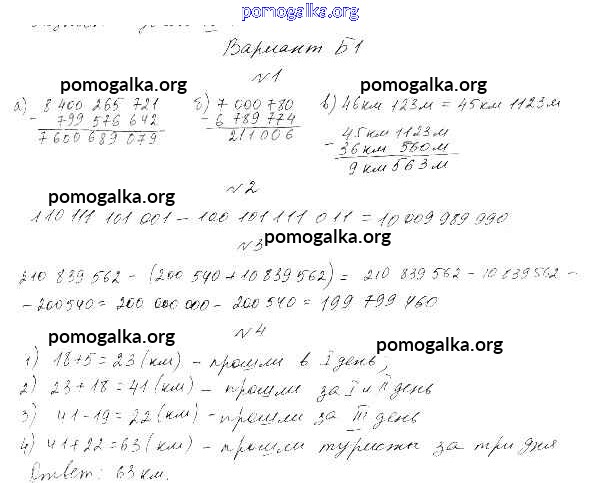 pomogalka.org
Вариант Б1
№1
pomogalka.org pomogalka.org
а) 8 400 265 721 б) 7 000 780 в) 46км 123м = 45км 1123м
- 799 576 642 - 6 789 774 45км 1123м
7600 689 079 211 006 - 36км 560м
9км 563м
pomogalka.org
№2
110 111 101 001 - 100 101 111 011 = 10 009 989 990
№3 pomogalka.org
210 839 562 - (200 540 + 10 839 562) = 210 839 562 - 10 839 562 -
- 200540 = 200 000 000 - 200 540 = 199 799 460
№4
pomogalka.org pomogalka.org
1) 18+5 = 23 (км) - прошли в I день,
2) 23+18 = 41 (км) - прошли за I и II день
3) 41-19 = 22 (км) - прошли за III день
4) 41+22 = 63 (км) - прошли туристы за три дня
Ответ: 63 км.